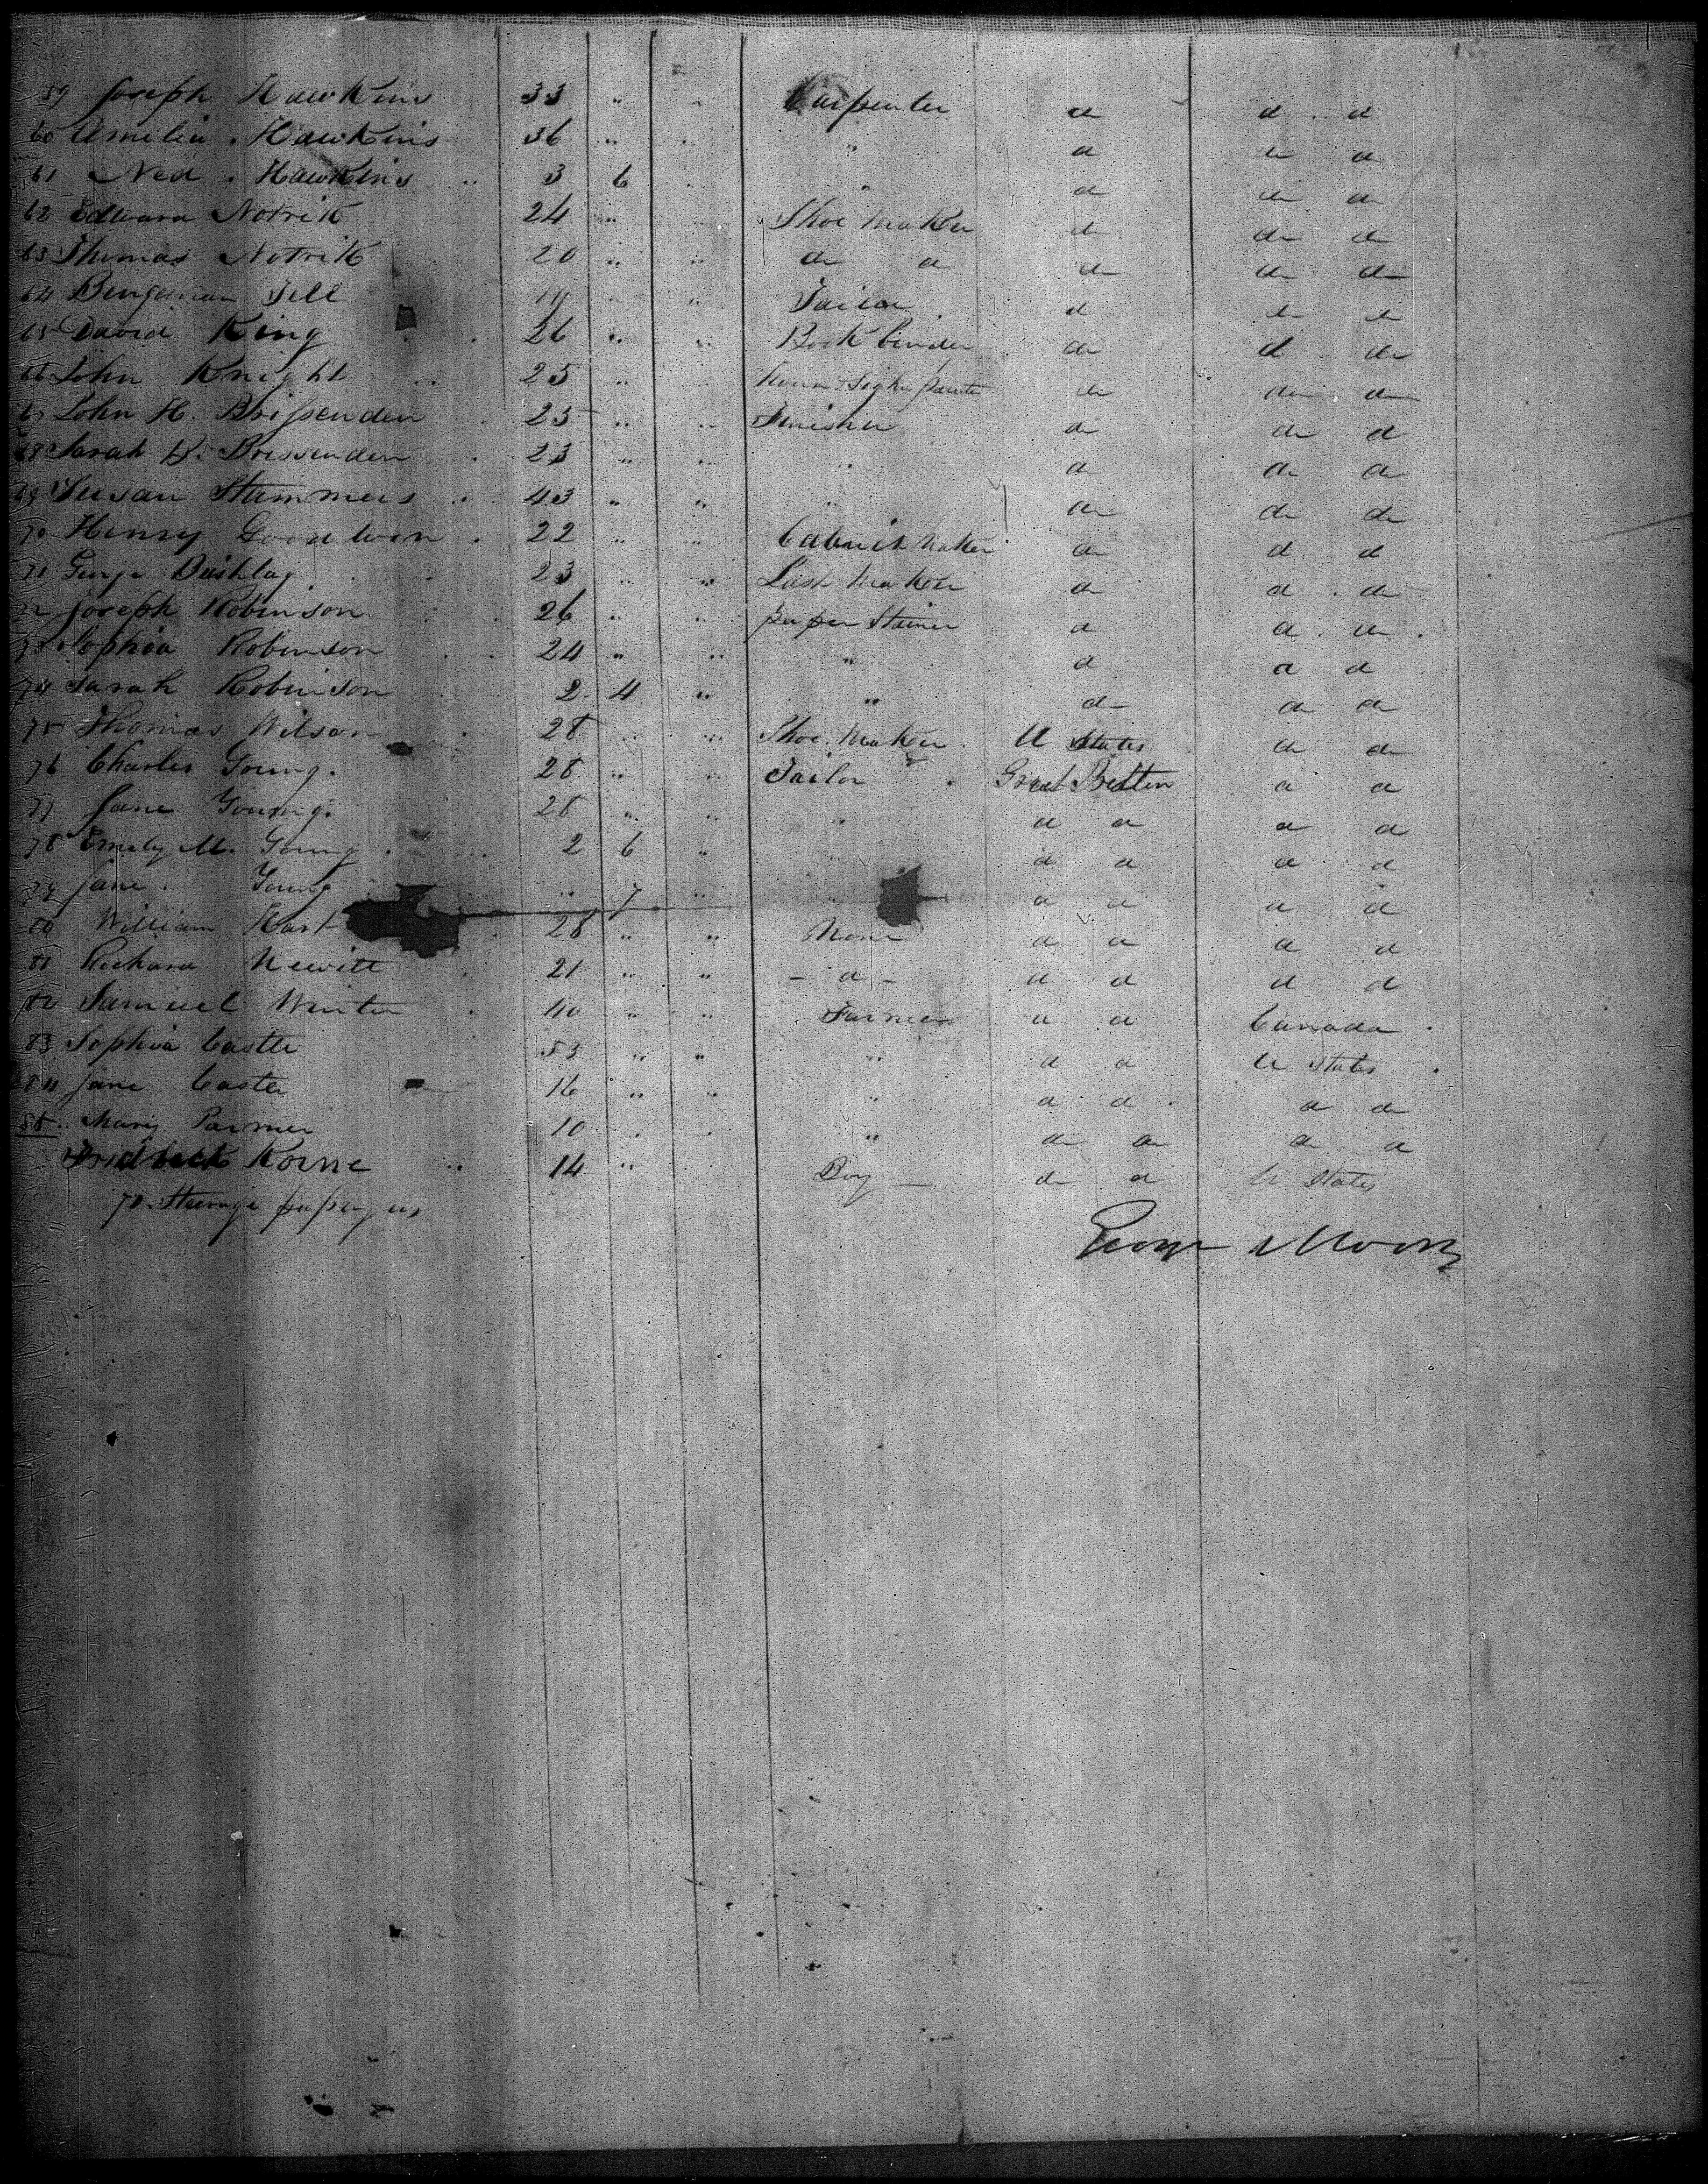 59 Joseph Hawkins 33 " " Carpenter d d d
60 Amelia Hawkins 36 " " " d d d
61 Ned Hawkins 3 6 " " d d d
62 Edward Notrik 24 " Shoe Maker d d d
63 Thomas Notrik 20 " " d d d d d
64 Bengaman Tell 19 " " Tailor d d d
65 David King 26 " " Book binder d d d
66 John Knight 25 " " & Sign painte d d d
67 John H. Brissenden 25 " " Finisher d d d
68 Sarah B. Brissenden 23 " " " d d d
69 Susan Stummers 43 " " " d d d
70 Henry Goodwin 22 " " Cabinet Maker d d d
71 George 23 " " Last Maker d d d
72 Joseph Robinson 26 " " paper Stainer d d d
73 Sophia Robinson 24 " " " d d d
74 Sarah Robinson 2 4 " " d d d
75 Thomas Wilson 28 " " Shoe Maker U States d d
76 Charles Young 28 " " Tailor Great Britten d d
77 Jane Young 28 " " " d d d d
78 Emely M. Young 2 6 " d d d d
79 Jane Young " 7 " " d d d d
80 William Hart 28 " " None d d d d
81 Richard Newitt 21 " " - d - d d d d
82 Samuel Winter 40 " " Farmer d d Canada
83 Sophia Castle 53 " " " d d U States
84 Jane Castle 16 " " " d d d d
85 Mary Parmer 10 " " " d d d d
Korne 14 " Boy d d U States
Steerage passengers
George Moore